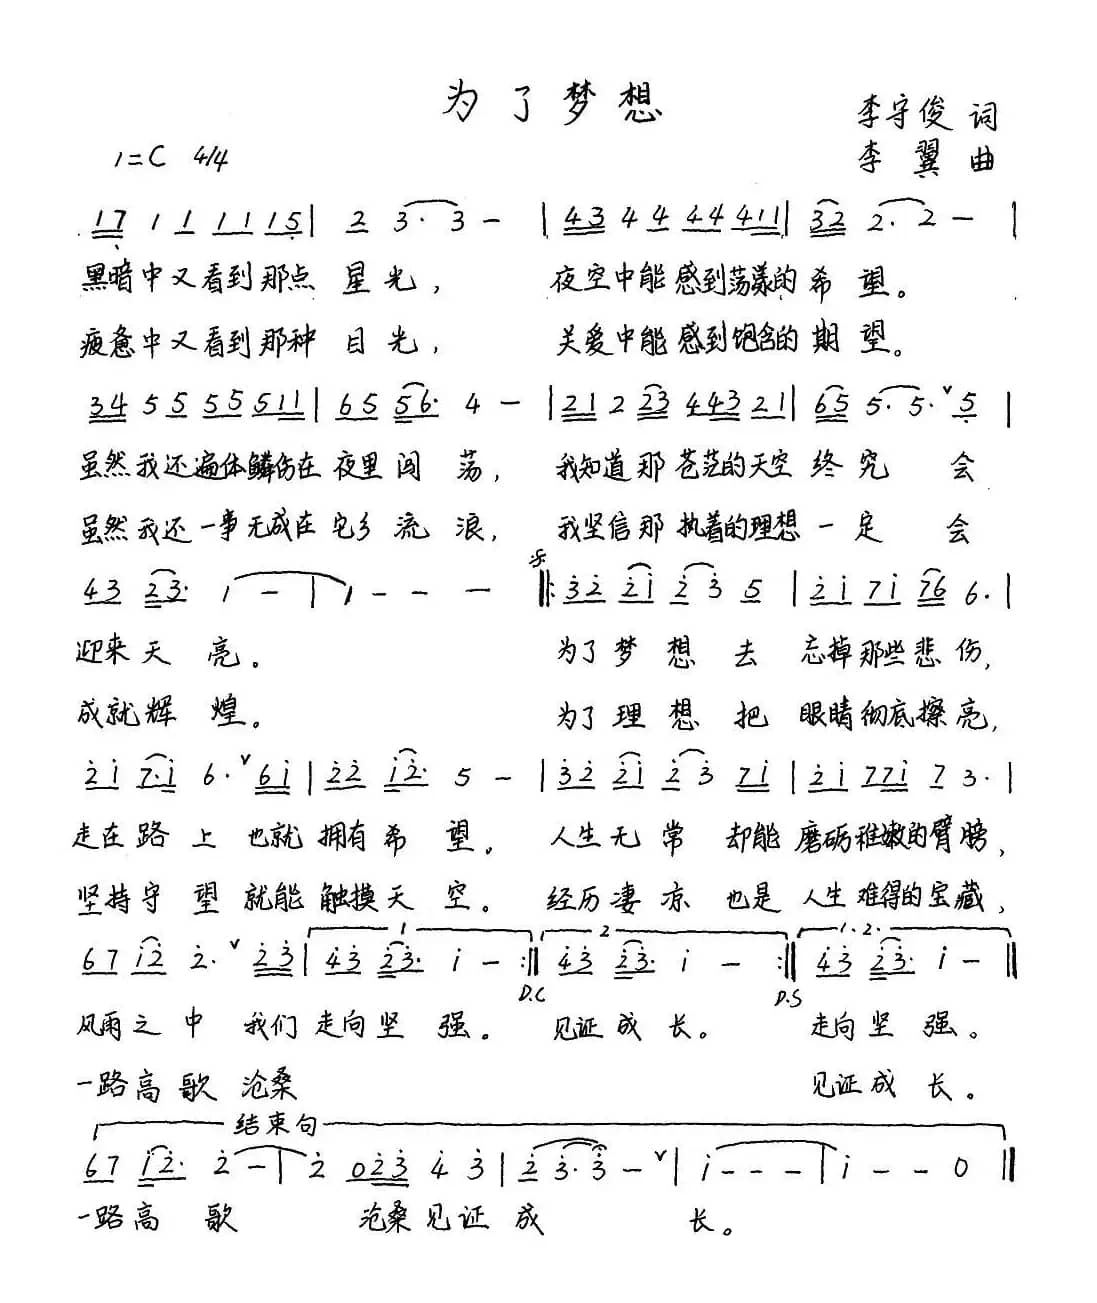 为了梦想
李守俊 词
1=C 4/4
李翼 曲
17 1 1 11 15 | 2 3· 3 – | 43 4 4 44 411 | 32 2· 2 – |
黑暗中又看到那点 星光， 夜空中能感到荡漾的希望。
疲惫中又看到那种 目光， 关爱中能感到饱含的期望。
34 5 5 55 511 | 65 56· 4 – | 21 2 23 443 21 | 65 5· 5· ∨ 5 |
虽然我还遍体鳞伤在夜里闯荡， 我知道那苍茫的天空终究 会
虽然我还一事无成在 流浪， 我坚信那执着的理想一定 会
43 23· 1 – | 1 – – – ‖: 32 21 23 5 | 21 71 76 6· |
迎来天亮。 为了梦想去 忘掉那些悲伤，
成就辉煌。 为了理想把 眼睛彻底擦亮，
21 7·1 6· ∨ 61 | 22 12· 5 – | 32 21 23 71 | 21 771 7 3· |
走在路上 也就拥有希望。 人生无常 却能磨砺稚嫩的臂膀，
坚持守望 就能触摸天空。 经历凄凉 也是人生难得的宝藏，
1 2 1.2.
67 12 2· ∨ 23 | 43 23· 1 – :‖ 43 23· 1 – :‖ 43 23· 1 – ‖
D.C D.S
风雨之中 我们走向坚强。 见证成长。 走向坚强。
一路高歌 沧桑 见证成长。
结束句
67 12· 2 – | 2 023 4 3 | 2 3· 3 – ∨ | 1 – – – | 1 – – 0 ‖
一路高歌 沧桑见证成 长。